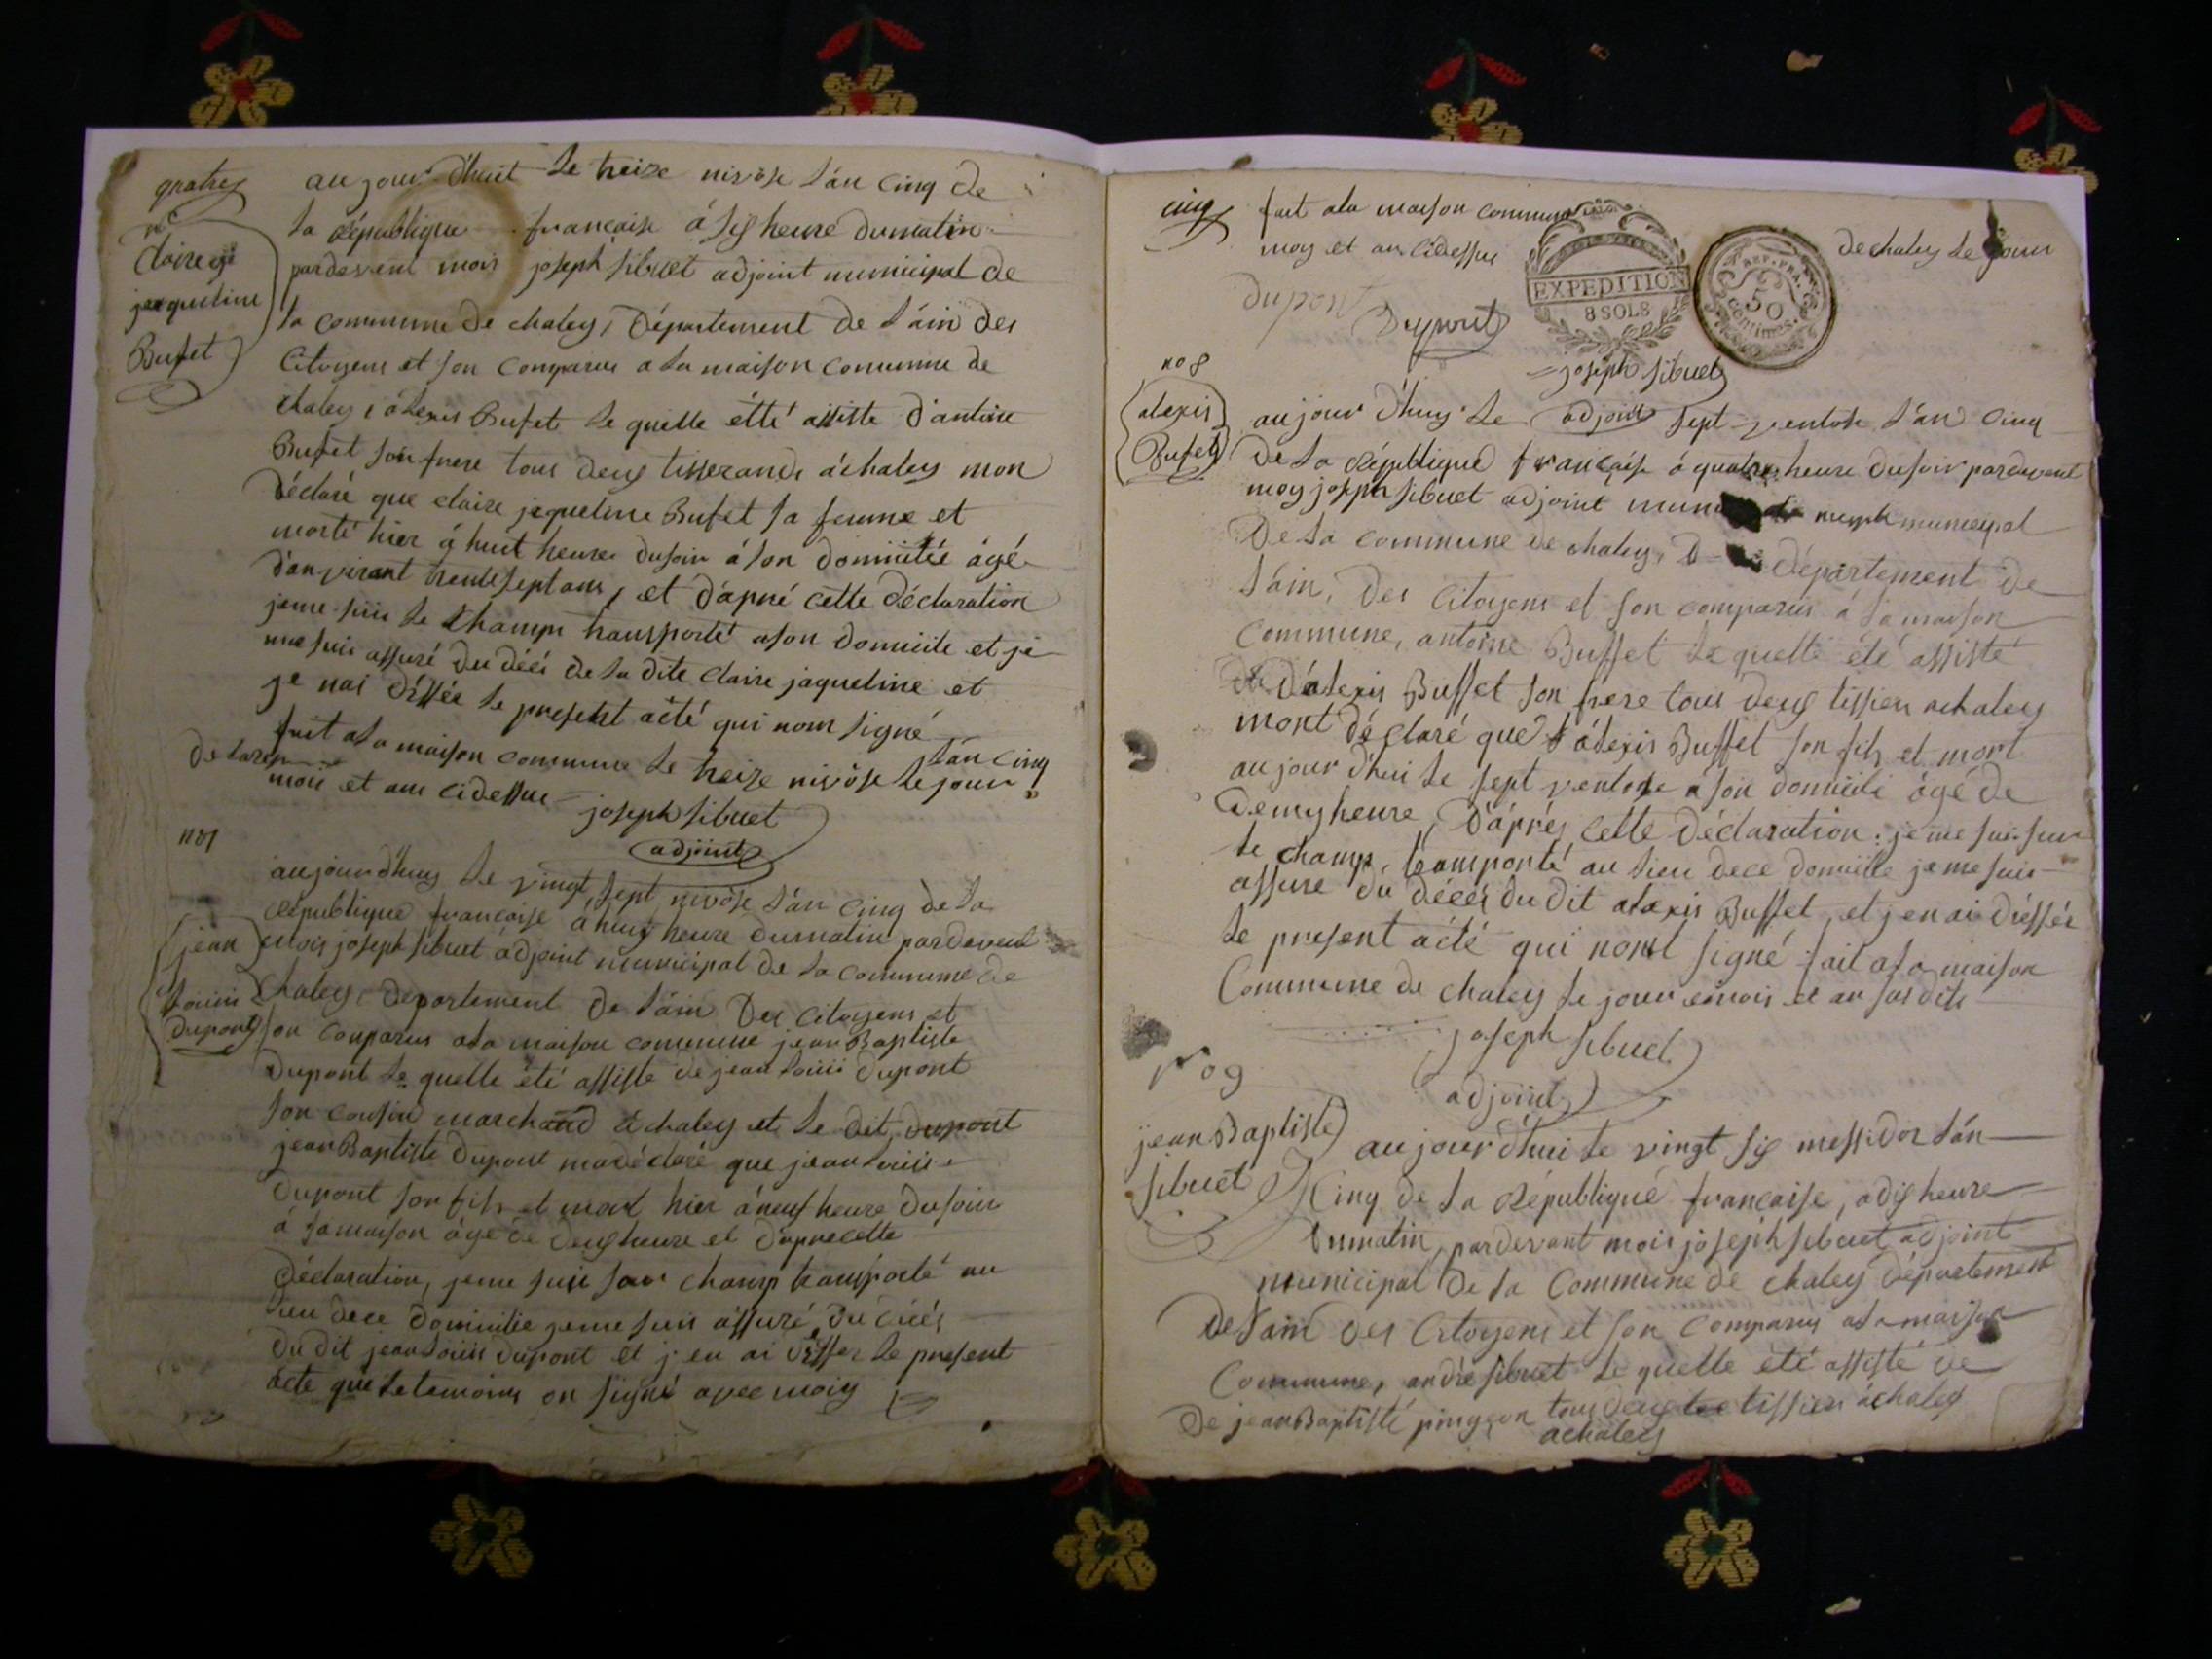 quatre
au jour d'huit le treize nivôse l'an cinq de
la république francaise á sis heure dumatin
pardevent mois joseph sibuet adjoint municipal de
la commune de chaley, Département de l'ain des
Citoyens et son comparus a la maison comunne de
chaley, álexis Bufet le quelle étté assiste d'antoine
Bufet son frere tous deus tisserands áchaley mon
Déclaré que claire jaqueline Bufet sa femme et
morté hier á huit heures dusoir á son domicilié ágé
d'anvirant trente sept ans, et d'apré cette déclaration
jeme suis le champs transporté ason domicile et je
me suis assuré du décés de la dite Claire jaqueline et
je nai dréssée le present acté qui nom signé
fait ala maison commune le treize nivôse l'an cinq le jour
mois et an cidessus joseph sibuet
adjoint
Claire
jaqueline
Bufet
no 7
jean
Louis
Dupont
aujourd'huy le vingt sept nivôse l'an cinq de la
république francaise á huit heure dumatin pardevent
mois joséph sibuet adjoint municipal de la commune de
chaley, département de l'ain Des Citoyens et
son comparus ala maison commune jean Baptiste
Dupont le quelle été assiste de jean Louis Dupont
son cousin marchand a chaley et le dit Dupont
jean Baptiste Dupont madéclaré que jean Louis
Dupont son fils et mort hier á neuf heure dusoir
á samaison ágé de deus heure et d'aprecette
déclaration, jeme suis sur champ transporté au
lieu dece domicilie jeme suis assuré du décés
du dit jean Louis Dupont et j'en ai drésser le present
acte que letemoins on signé avec moiy
cinq
fait ala maison commune de chaley le jour
moy et an cidessus
EXPEDITION
8 SOLS
REP. FRA.
50
centimes.
dupont
Dupont
joseph sibuet
adjoint
no 8
alexis
Bufet
aujour d'huy le sept ventose l'an cinq
de la république francaise á quatre heure dusoir pardevent
moy joseph sibuet adjoint municipal
De la commune de chaley, département de
l'ain, des Citoyens et son comparus á la maison
commune, antoine Buffet le quelle été assisté
d'álexis Buffet son frere tous deus tissier achaley
mont déclaré que álexis Buffet son fils et mort
aujour d'hui le sept ventose á son domicile ágé de
demy heure, d'aprés cette déclaration. je me suis sur
le champs, transporté au lieu dece domicille je me suis
assure du décés du dit alexis Buffet, et j'en ai dréssée
le present acté qui nont signé fait ala maison
Commune de chaley le jour et mois et an sus dits
joseph sibuet
adjoint
No 9
jean Baptiste
sibuet
aujour d'hui le vingt sis messidor l'an
Cinq de la République francaise, adis heure
Dumatin, pardevant mois joséph sibuet adjoint
municipal de la Commune de chaley département
de l'ain des Citoyens et son comparus ala maison
Commune, andré sibuet le quelle été assisté de
de jean Baptisté pingeon tous deus tissier áchaley
achaley